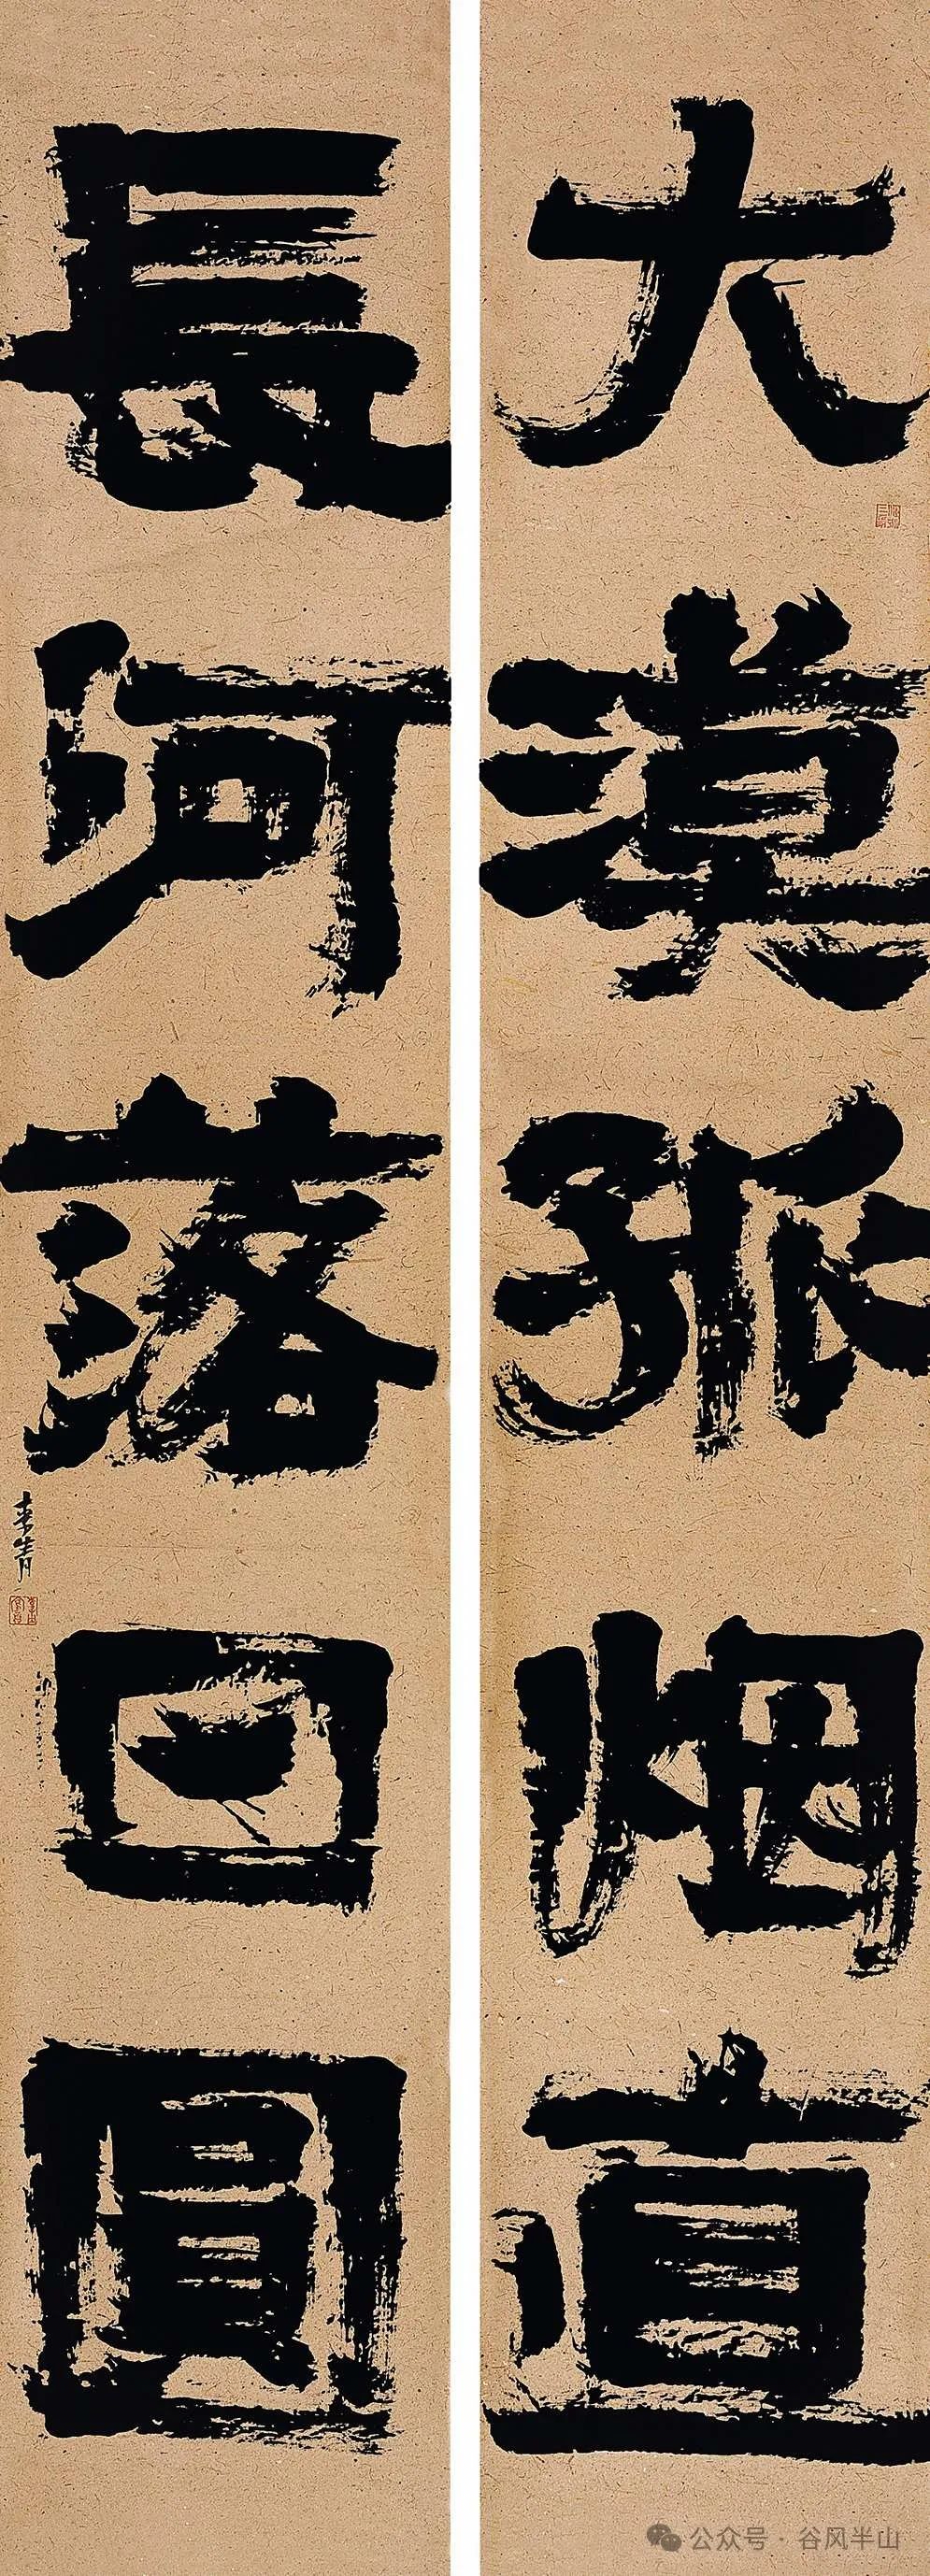 大漠孤烟直
長河落日圓
来青
公众号·谷风半山